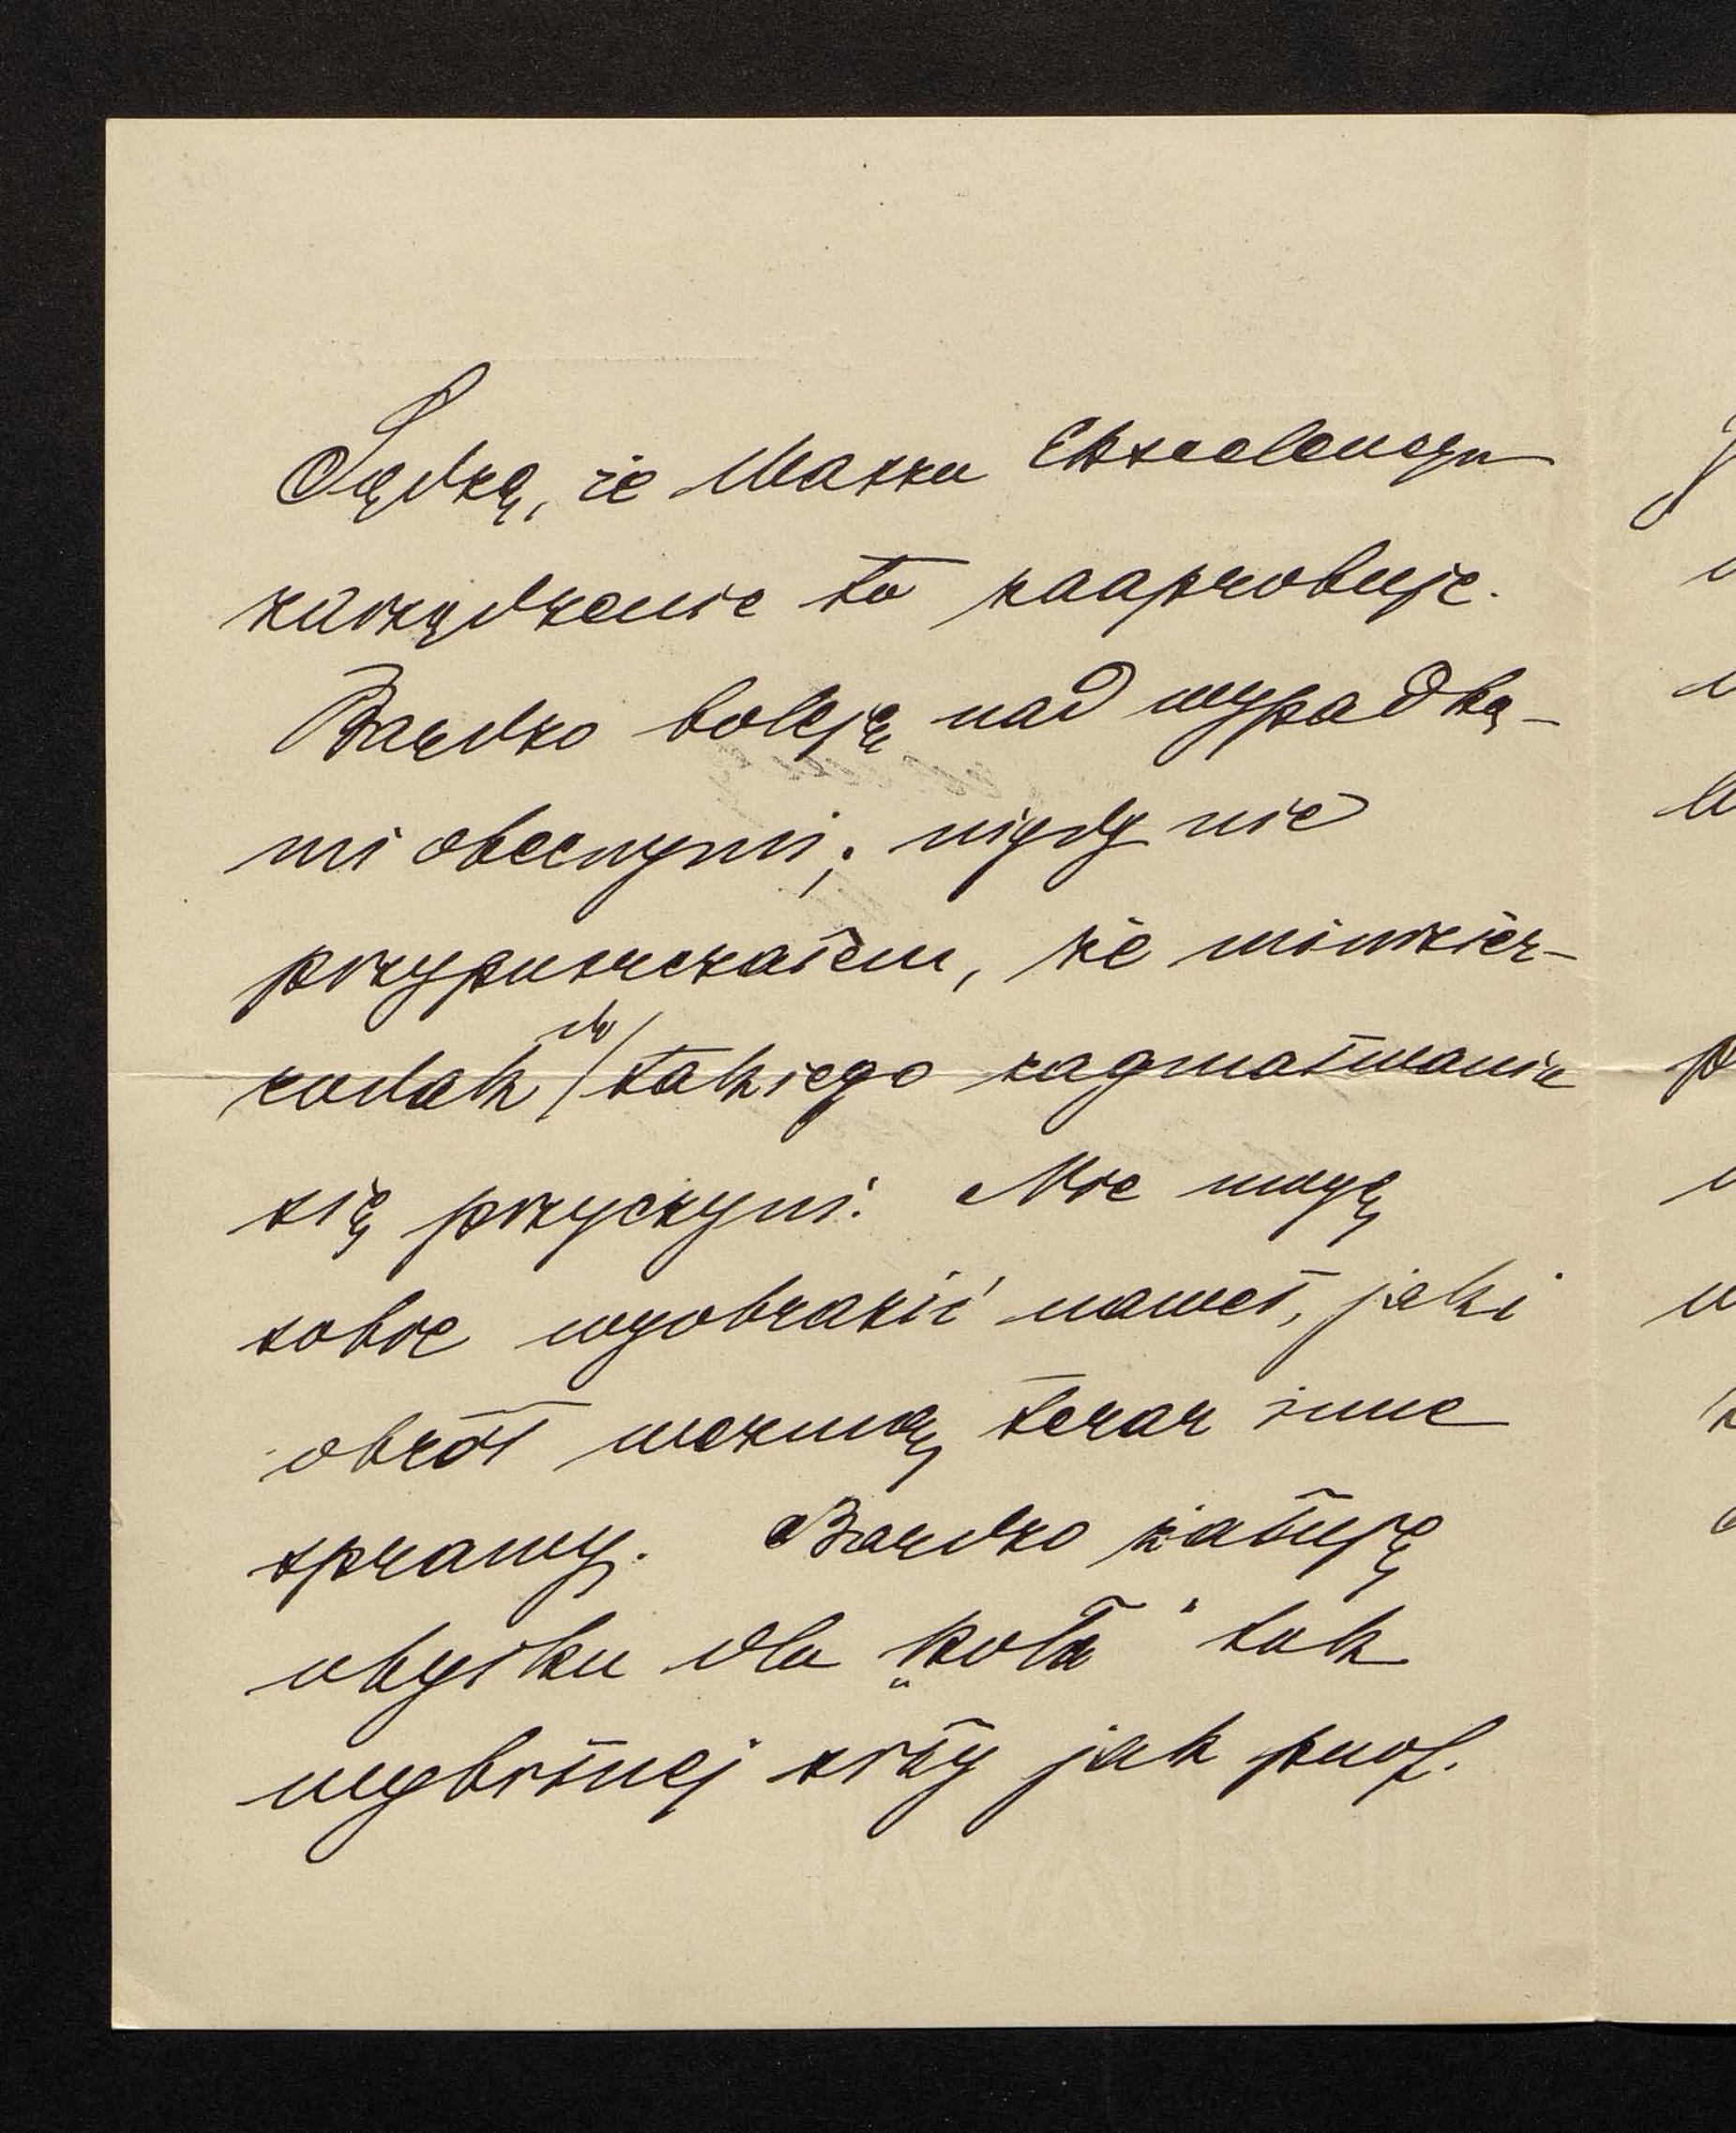 Sądzę, że Wasza Ekscelencya
zarządzenie to zaaprobuje.
Bardzo boleję nad wypadka-
mi obecnymi; nigdy nie
przypuszczałem, że
rodak do takiego zagmatwania
się przyczyni. Nie mogę
sobie wyobrazić nawet, jaki
obrót wezmą teraz inne
sprawy. Bardzo żałuję
ubytku dla „Koła" tak
wybitnej siły jak prof.